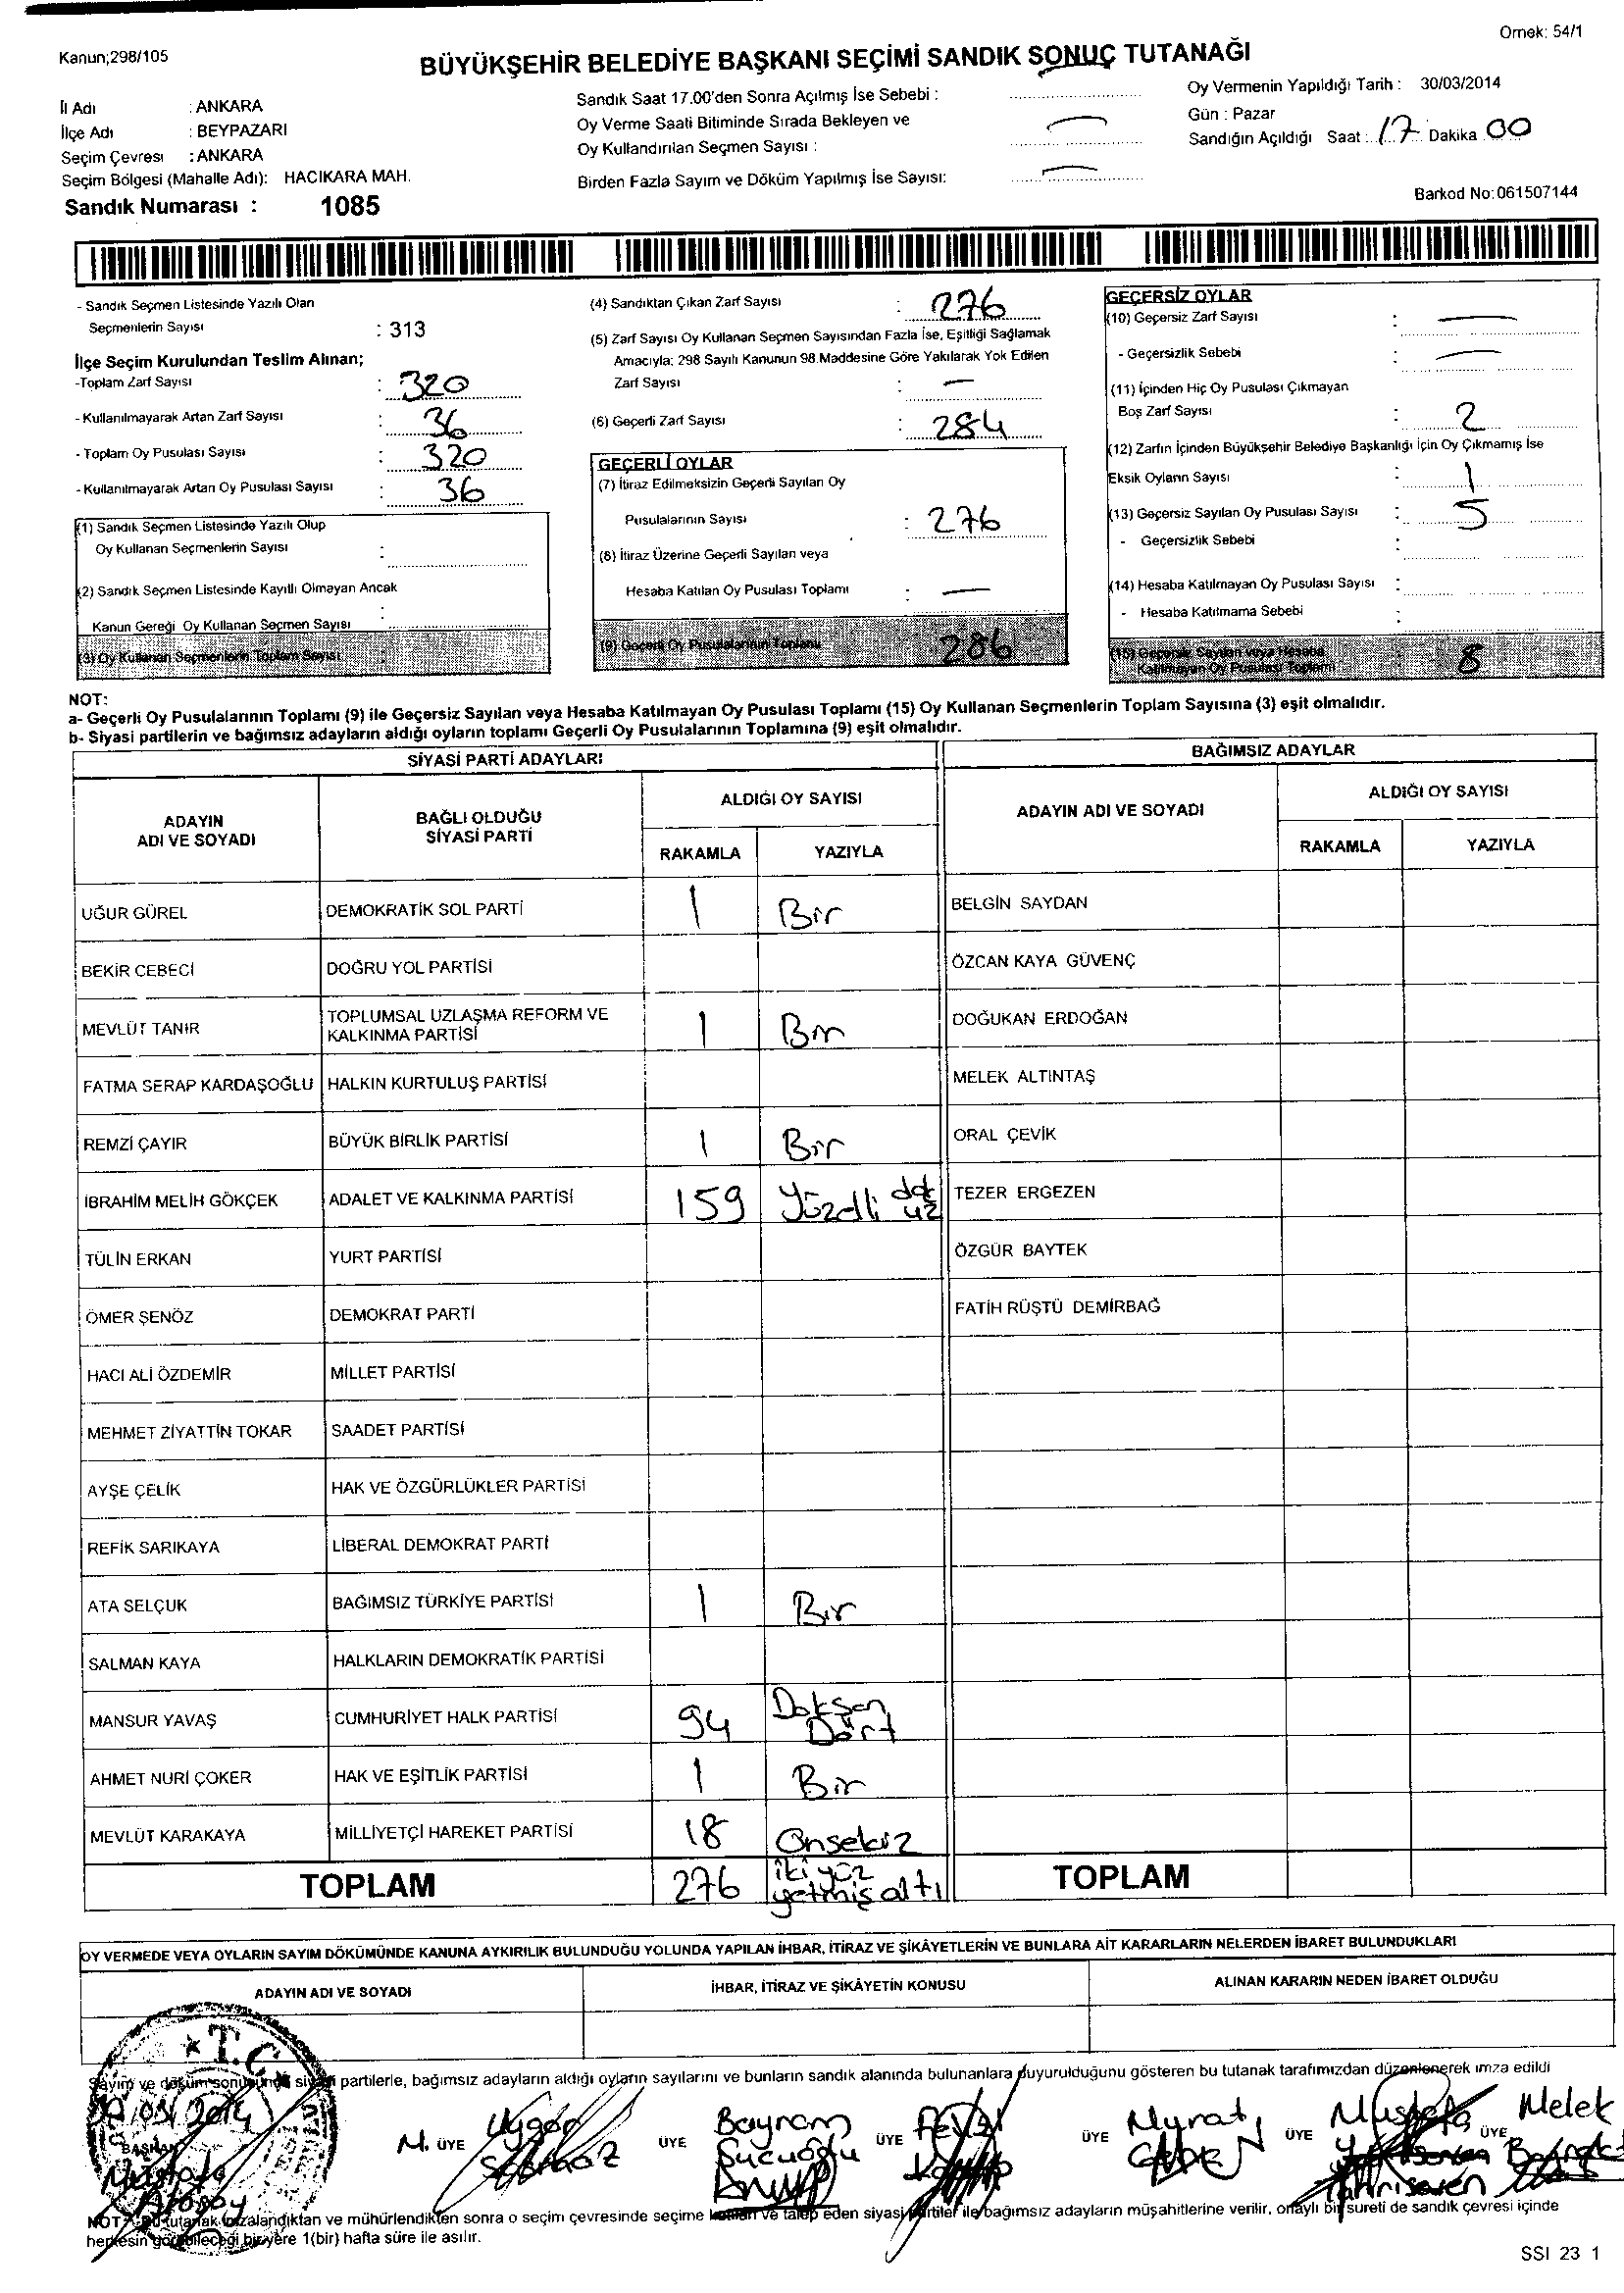 Örnek: 54/1
Kanun;298/105
BÜYÜKŞEHİR BELEDİYE BAŞKANI SEÇİMİ SANDIK SONUÇ TUTANAĞI
İl Adı : ANKARA
İlçe Adı : BEYPAZARI
Seçim Çevresi : ANKARA
Seçim Bölgesi (Mahalle Adı): HACIKARA MAH.
Sandık Numarası : 1085
Sandık Saat 17.00'den Sonra Açılmış İse Sebebi :
Oy Verme Saati Bitiminde Sırada Bekleyen ve
Oy Kullandırılan Seçmen Sayısı : —
Birden Fazla Sayım ve Döküm Yapılmış İse Sayısı: —
Oy Vermenin Yapıldığı Tarih : 30/03/2014
Gün : Pazar
Sandığın Açıldığı Saat : 17 Dakika 00
Barkod No:061507144
- Sandık Seçmen Listesinde Yazılı Olan
Seçmenlerin Sayısı : 313
İlçe Seçim Kurulundan Teslim Alınan;
-Toplam Zarf Sayısı : 320
- Kullanılmayarak Artan Zarf Sayısı : 36
- Toplam Oy Pusulası Sayısı : 320
- Kullanılmayarak Artan Oy Pusulası Sayısı : 36
(1) Sandık Seçmen Listesinde Yazılı Olup
Oy Kullanan Seçmenlerin Sayısı :
(2) Sandık Seçmen Listesinde Kayıtlı Olmayan Ancak
Kanun Gereği Oy Kullanan Seçmen Sayısı :
(3) Oy Kullanan Seçmenlerin Toplam Sayısı :
(4) Sandıktan Çıkan Zarf Sayısı : 276
(5) Zarf Sayısı Oy Kullanan Seçmen Sayısından Fazla İse, Eşitliği Sağlamak
Amacıyla; 298 Sayılı Kanunun 98.Maddesine Göre Yakılarak Yok Edilen
Zarf Sayısı : —
(6) Geçerli Zarf Sayısı : 284
GEÇERLİ OYLAR
(7) İtiraz Edilmeksizin Geçerli Sayılan Oy
Pusulalarının Sayısı : 276
(8) İtiraz Üzerine Geçerli Sayılan veya
Hesaba Katılan Oy Pusulası Toplamı : —
(9) Geçerli Oy Pusulalarının Toplamı 286
GEÇERSİZ OYLAR
(10) Geçersiz Zarf Sayısı : —
- Geçersizlik Sebebi : —
(11) İçinden Hiç Oy Pusulası Çıkmayan
Boş Zarf Sayısı : 2
(12) Zarfın İçinden Büyükşehir Belediye Başkanlığı İçin Oy Çıkmamış İse
Eksik Oyların Sayısı : 1
(13) Geçersiz Sayılan Oy Pusulası Sayısı : 5
- Geçersizlik Sebebi :
(14) Hesaba Katılmayan Oy Pusulası Sayısı :
- Hesaba Katılmama Sebebi :
(15) Geçersiz Sayılan veya Hesaba
Katılmayan Oy Pusulası Toplamı 8
NOT:
a- Geçerli Oy Pusulalarının Toplamı (9) ile Geçersiz Sayılan veya Hesaba Katılmayan Oy Pusulası Toplamı (15) Oy Kullanan Seçmenlerin Toplam Sayısına (3) eşit olmalıdır.
b- Siyasi partilerin ve bağımsız adayların aldığı oyların toplamı Geçerli Oy Pusulalarının Toplamına (9) eşit olmalıdır.
SİYASİ PARTİ ADAYLARI
ADAYIN
ADI VE SOYADI
BAĞLI OLDUĞU
SİYASİ PARTİ
ALDIĞI OY SAYISI
RAKAMLA YAZIYLA
UĞUR GÜREL DEMOKRATİK SOL PARTİ 1 Bir
BEKİR CEBECİ DOĞRU YOL PARTİSİ
MEVLÜT TANIR TOPLUMSAL UZLAŞMA REFORM VE
KALKINMA PARTİSİ 1 Bir
FATMA SERAP KARDAŞOĞLU HALKIN KURTULUŞ PARTİSİ
REMZİ ÇAYIR BÜYÜK BİRLİK PARTİSİ 1 Bir
İBRAHİM MELİH GÖKÇEK ADALET VE KALKINMA PARTİSİ 159 Yüzelli dokuz
TÜLİN ERKAN YURT PARTİSİ
ÖMER ŞENÖZ DEMOKRAT PARTİ
HACI ALİ ÖZDEMİR MİLLET PARTİSİ
MEHMET ZİYATTİN TOKAR SAADET PARTİSİ
AYŞE ÇELİK HAK VE ÖZGÜRLÜKLER PARTİSİ
REFİK SARIKAYA LİBERAL DEMOKRAT PARTİ
ATA SELÇUK BAĞIMSIZ TÜRKİYE PARTİSİ 1 Bir
SALMAN KAYA HALKLARIN DEMOKRATİK PARTİSİ
MANSUR YAVAŞ CUMHURİYET HALK PARTİSİ 94 Doksan
Dört
AHMET NURİ ÇOKER HAK VE EŞİTLİK PARTİSİ 1 Bir
MEVLÜT KARAKAYA MİLLİYETÇİ HAREKET PARTİSİ 18 Onsekiz
TOPLAM 276 iki yüz
yetmiş altı
BAĞIMSIZ ADAYLAR
ADAYIN ADI VE SOYADI
ALDIĞI OY SAYISI
RAKAMLA YAZIYLA
BELGİN SAYDAN
ÖZCAN KAYA GÜVENÇ
DOĞUKAN ERDOĞAN
MELEK ALTINTAŞ
ORAL ÇEVİK
TEZER ERGEZEN
ÖZGÜR BAYTEK
FATİH RÜŞTÜ DEMİRBAĞ
TOPLAM
OY VERMEDE VEYA OYLARIN SAYIM DÖKÜMÜNDE KANUNA AYKIRILIK BULUNDUĞU YOLUNDA YAPILAN İHBAR, İTİRAZ VE ŞİKÂYETLERİN VE BUNLARA AİT KARARLARIN NELERDEN İBARET BULUNDUKLARI
ADAYIN ADI VE SOYADI İHBAR, İTİRAZ VE ŞİKÂYETİN KONUSU ALINAN KARARIN NEDEN İBARET OLDUĞU
T.C.
Sayım ve döküm sonucunda siyasi partilerle, bağımsız adayların aldığı oyların sayılarını ve bunların sandık alanında bulunanlara duyurulduğunu gösteren bu tutanak tarafımızdan düzenlenerek imza edildi
30/03/2014
BAŞKAN
Mustafa
Atasoy
M. ÜYE Uygar
ÜYE Bayram
Sucuoğlu
ÜYE Fevzi
ÜYE Murat
ÜYE Mustafa
ÜYE Melek
NOT: Bu tutanak imzalandıktan ve mühürlendikten sonra o seçim çevresinde seçime katılan ve talep eden siyasi partiler ile bağımsız adayların müşahitlerine verilir, onaylı bir sureti de sandık çevresi içinde
herkesin görebileceği bir yere 1(bir) hafta süre ile asılır.
SSI 23 1